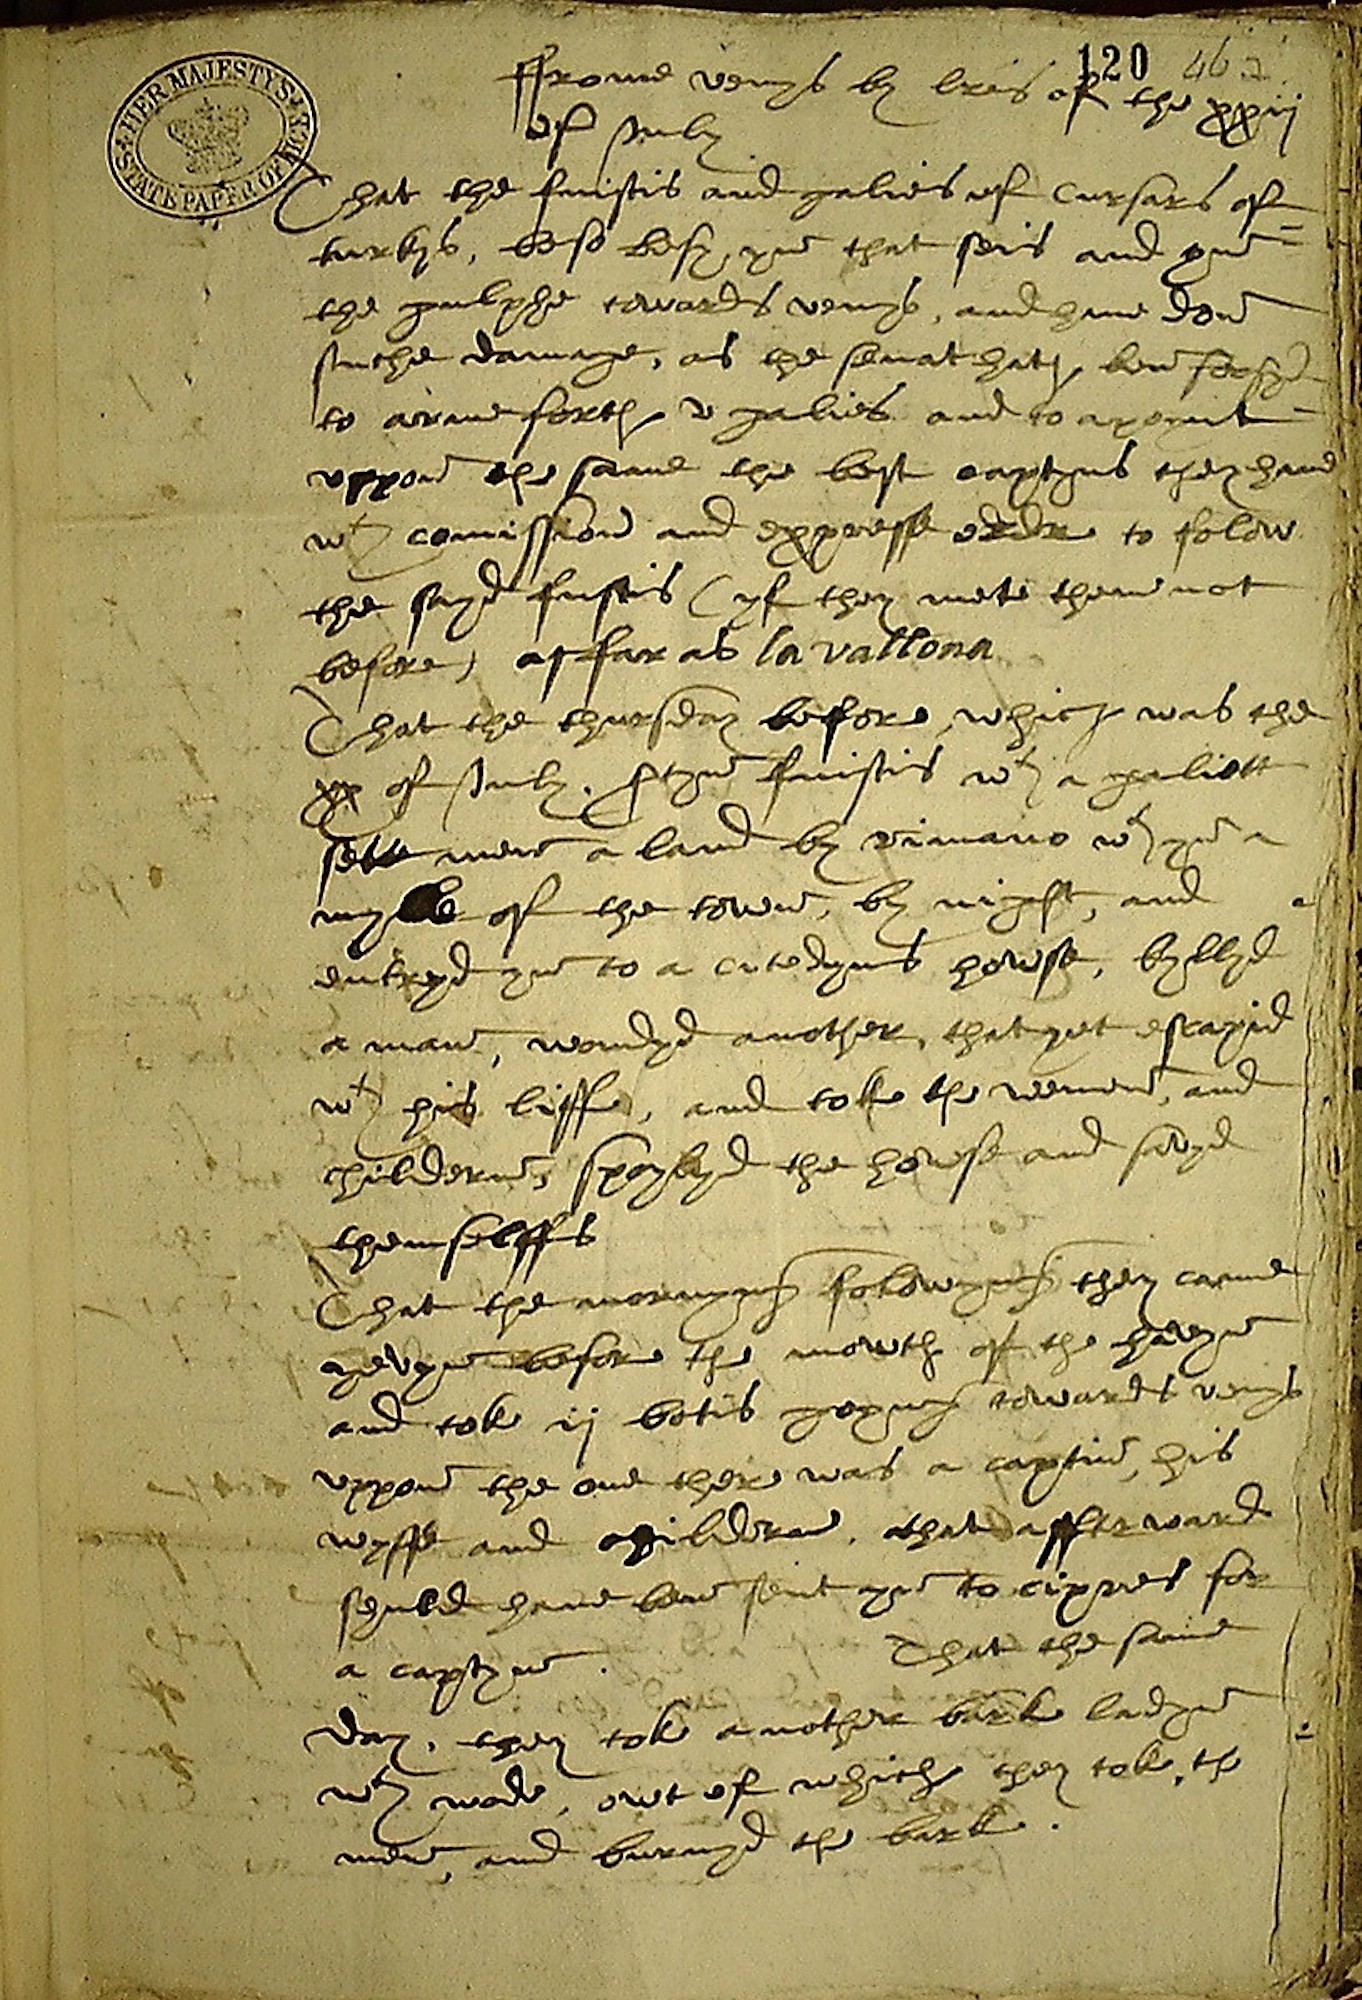 120 462
HER MAJESTY'S STATE PAPER OFFICE
ffrome venys by lres of the xxij
of July
That the fuistis and galies of cursars of
turkys, be so besy yn that seis and yn
the gulphe towards venys, and have don
suche damage, as the senat hath ben forsyd
to arme forth v galies and to apoynt
uppon the same the best captyns they have
wth comission and expresse order to folow
the sayd fustis (yf they mete theme not
before) as far as la vallona
That the thursday before, which was the
xx of July. fuistis wth a galiott
sett men a land by Rimano wth yn a
myle of the towne, by night, and
entreyd yn to a citedyns howse, kyllyd
a man, wondyd another, that yet escapid
wth his liffe, and toke the wemen, and
childern, spoylyd the howse and savyd
themselffs
That the mornyng folowyng they came
before the mowth of the havyn
and tok ij botis goyng towards venys
uppon the one there was a captin, his
wyffe and childern, that afterward
shuld have ben sent yn to cipres for
a captyn. That the same
day, they tok another bark ladyn
wth wode, owt of which they tok, the
men, and burnyd the bark.